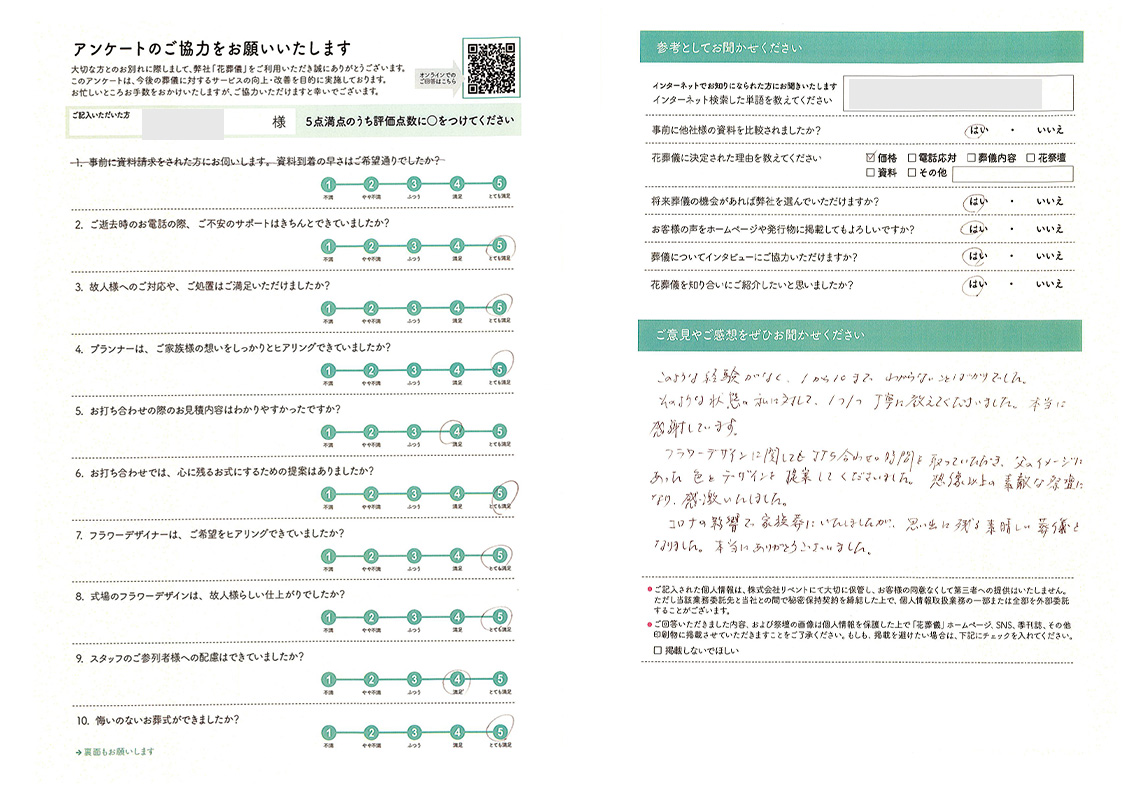 アンケートのご協力をお願いいたします
大切な方とのお別れに際しまして、弊社「花葬儀」をご利用いただき誠にありがとうございます。
このアンケートは、今後の葬儀に対するサービスの向上・改善を目的に実施しております。
お忙しいところお手数をおかけいたしますが、ご協力いただけますと幸いでございます。
オンラインでの
ご回答はこちら
ご記入いただいた方
様
5点満点のうち評価点数に○をつけてください
1. 事前に資料請求をされた方にお伺いします。資料到着の早さはご希望通りでしたか?
1 2 3 4 5
不満 やや不満 ふつう 満足 とても満足
2. ご逝去時のお電話の際、ご不安のサポートはきちんとできていましたか?
1 2 3 4 5
不満 やや不満 ふつう 満足 とても満足
3. 故人様へのご対応や、ご処置はご満足いただけましたか?
1 2 3 4 5
不満 やや不満 ふつう 満足 とても満足
4. プランナーは、ご家族様の想いをしっかりとヒアリングできていましたか?
1 2 3 4 5
不満 やや不満 ふつう 満足 とても満足
5. お打ち合わせの際のお見積内容はわかりやすかったですか?
1 2 3 4 5
不満 やや不満 ふつう 満足 とても満足
6. お打ち合わせでは、心に残るお式にするための提案はありましたか?
1 2 3 4 5
不満 やや不満 ふつう 満足 とても満足
7. フラワーデザイナーは、ご希望をヒアリングできていましたか?
1 2 3 4 5
不満 やや不満 ふつう 満足 とても満足
8. 式場のフラワーデザインは、故人様らしい仕上がりでしたか?
1 2 3 4 5
不満 やや不満 ふつう 満足 とても満足
9. スタッフのご参列者様への配慮はできていましたか?
1 2 3 4 5
不満 やや不満 ふつう 満足 とても満足
10. 悔いのないお葬式ができましたか?
1 2 3 4 5
不満 やや不満 ふつう 満足 とても満足
→裏面もお願いします
参考としてお聞かせください
インターネットでお知りになられた方にお聞きいたします
インターネット検索した単語を教えてください
事前に他社様の資料を比較されましたか? はい ・ いいえ
花葬儀に決定された理由を教えてください ☑価格 □電話応対 □葬儀内容 □花祭壇
□資料 □その他
将来葬儀の機会があれば弊社を選んでいただけますか? はい ・ いいえ
お客様の声をホームページや発行物に掲載してもよろしいですか? はい ・ いいえ
葬儀についてインタビューにご協力いただけますか? はい ・ いいえ
花葬儀を知り合いにご紹介したいと思いましたか? はい ・ いいえ
ご意見やご感想をぜひお聞かせください
このような経験がなく、1から10まで、わからないことばかりでした。
そのような状態の私に対して、1つ1つ丁寧に教えてくださいました。本当に
感謝しています。
フラワーデザインに関しても打ち合わせの時間を取っていただき、父のイメージに
あった色とデザインを提案してくださいました。想像以上の素敵な祭壇に
なり、感激いたしました。
コロナの影響で家族葬にいたしましたが、思い出に残る素晴しい葬儀と
なりました。本当にありがとうございました。
●ご記入された個人情報は、株式会社リベントにて大切に保管し、お客様の同意なくして第三者への提供はいたしません。
ただし当該業務委託先と当社との間で秘密保持契約を締結した上で、個人情報取扱業務の一部または全部を外部委託
することがございます。
●ご回答いただきました内容、および祭壇の画像は個人情報を保護した上で「花葬儀」ホームページ、SNS、季刊誌、その他
印刷物に掲載させていただきますことをご了承ください。もしも、掲載を避けたい場合は、下記にチェックを入れてください。
□ 掲載しないでほしい